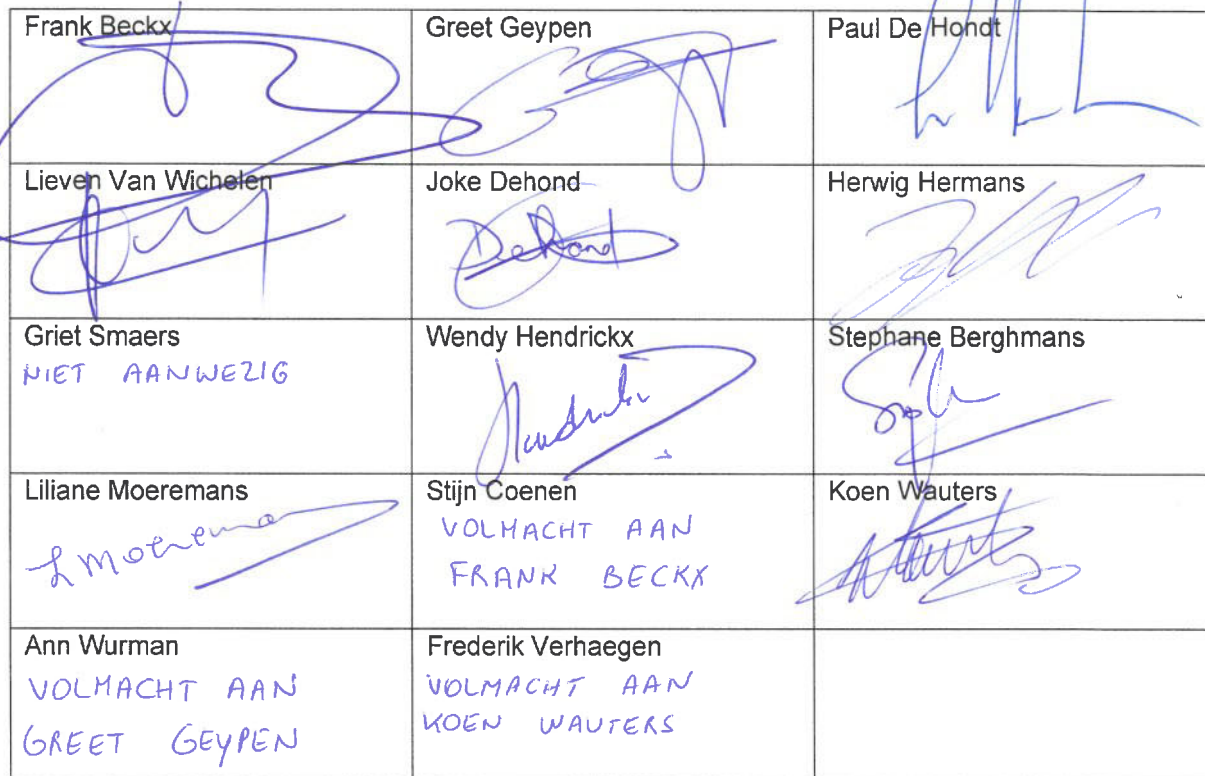 Frank Beckx
Greet Geypen
Paul De Hondt
Lieven Van Wichelen
Joke Dehond
DeHond
Herwig Hermans
Griet Smaers
NIET AANWEZIG
Wendy Hendrickx
Stephane Berghmans
Liliane Moeremans
L Moeremans
Stijn Coenen
VOLMACHT AAN
FRANK BECKX
Koen Wauters
Ann Wurman
VOLMACHT AAN
GREET GEYPEN
Frederik Verhaegen
VOLMACHT AAN
KOEN WAUTERS